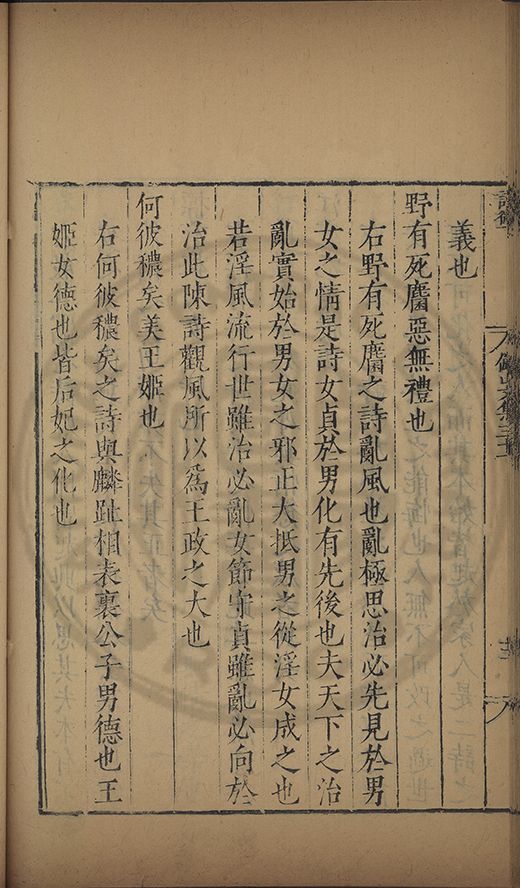 義也
野有死麕惡無禮也
右野有死麕之詩亂風也亂極思治必先見於男
女之情是詩女貞於男化有先後也夫天下之治
亂實始於男女之邪正大抵男之從淫女成之也
若淫風流行世雖治必亂女節守貞雖亂必向於
治此陳詩觀風所以爲王政之大也
何彼穠矣美王姬也
右何彼穠矣之詩與麟趾相表裏公子男德也王
姬女德也皆后妃之化也